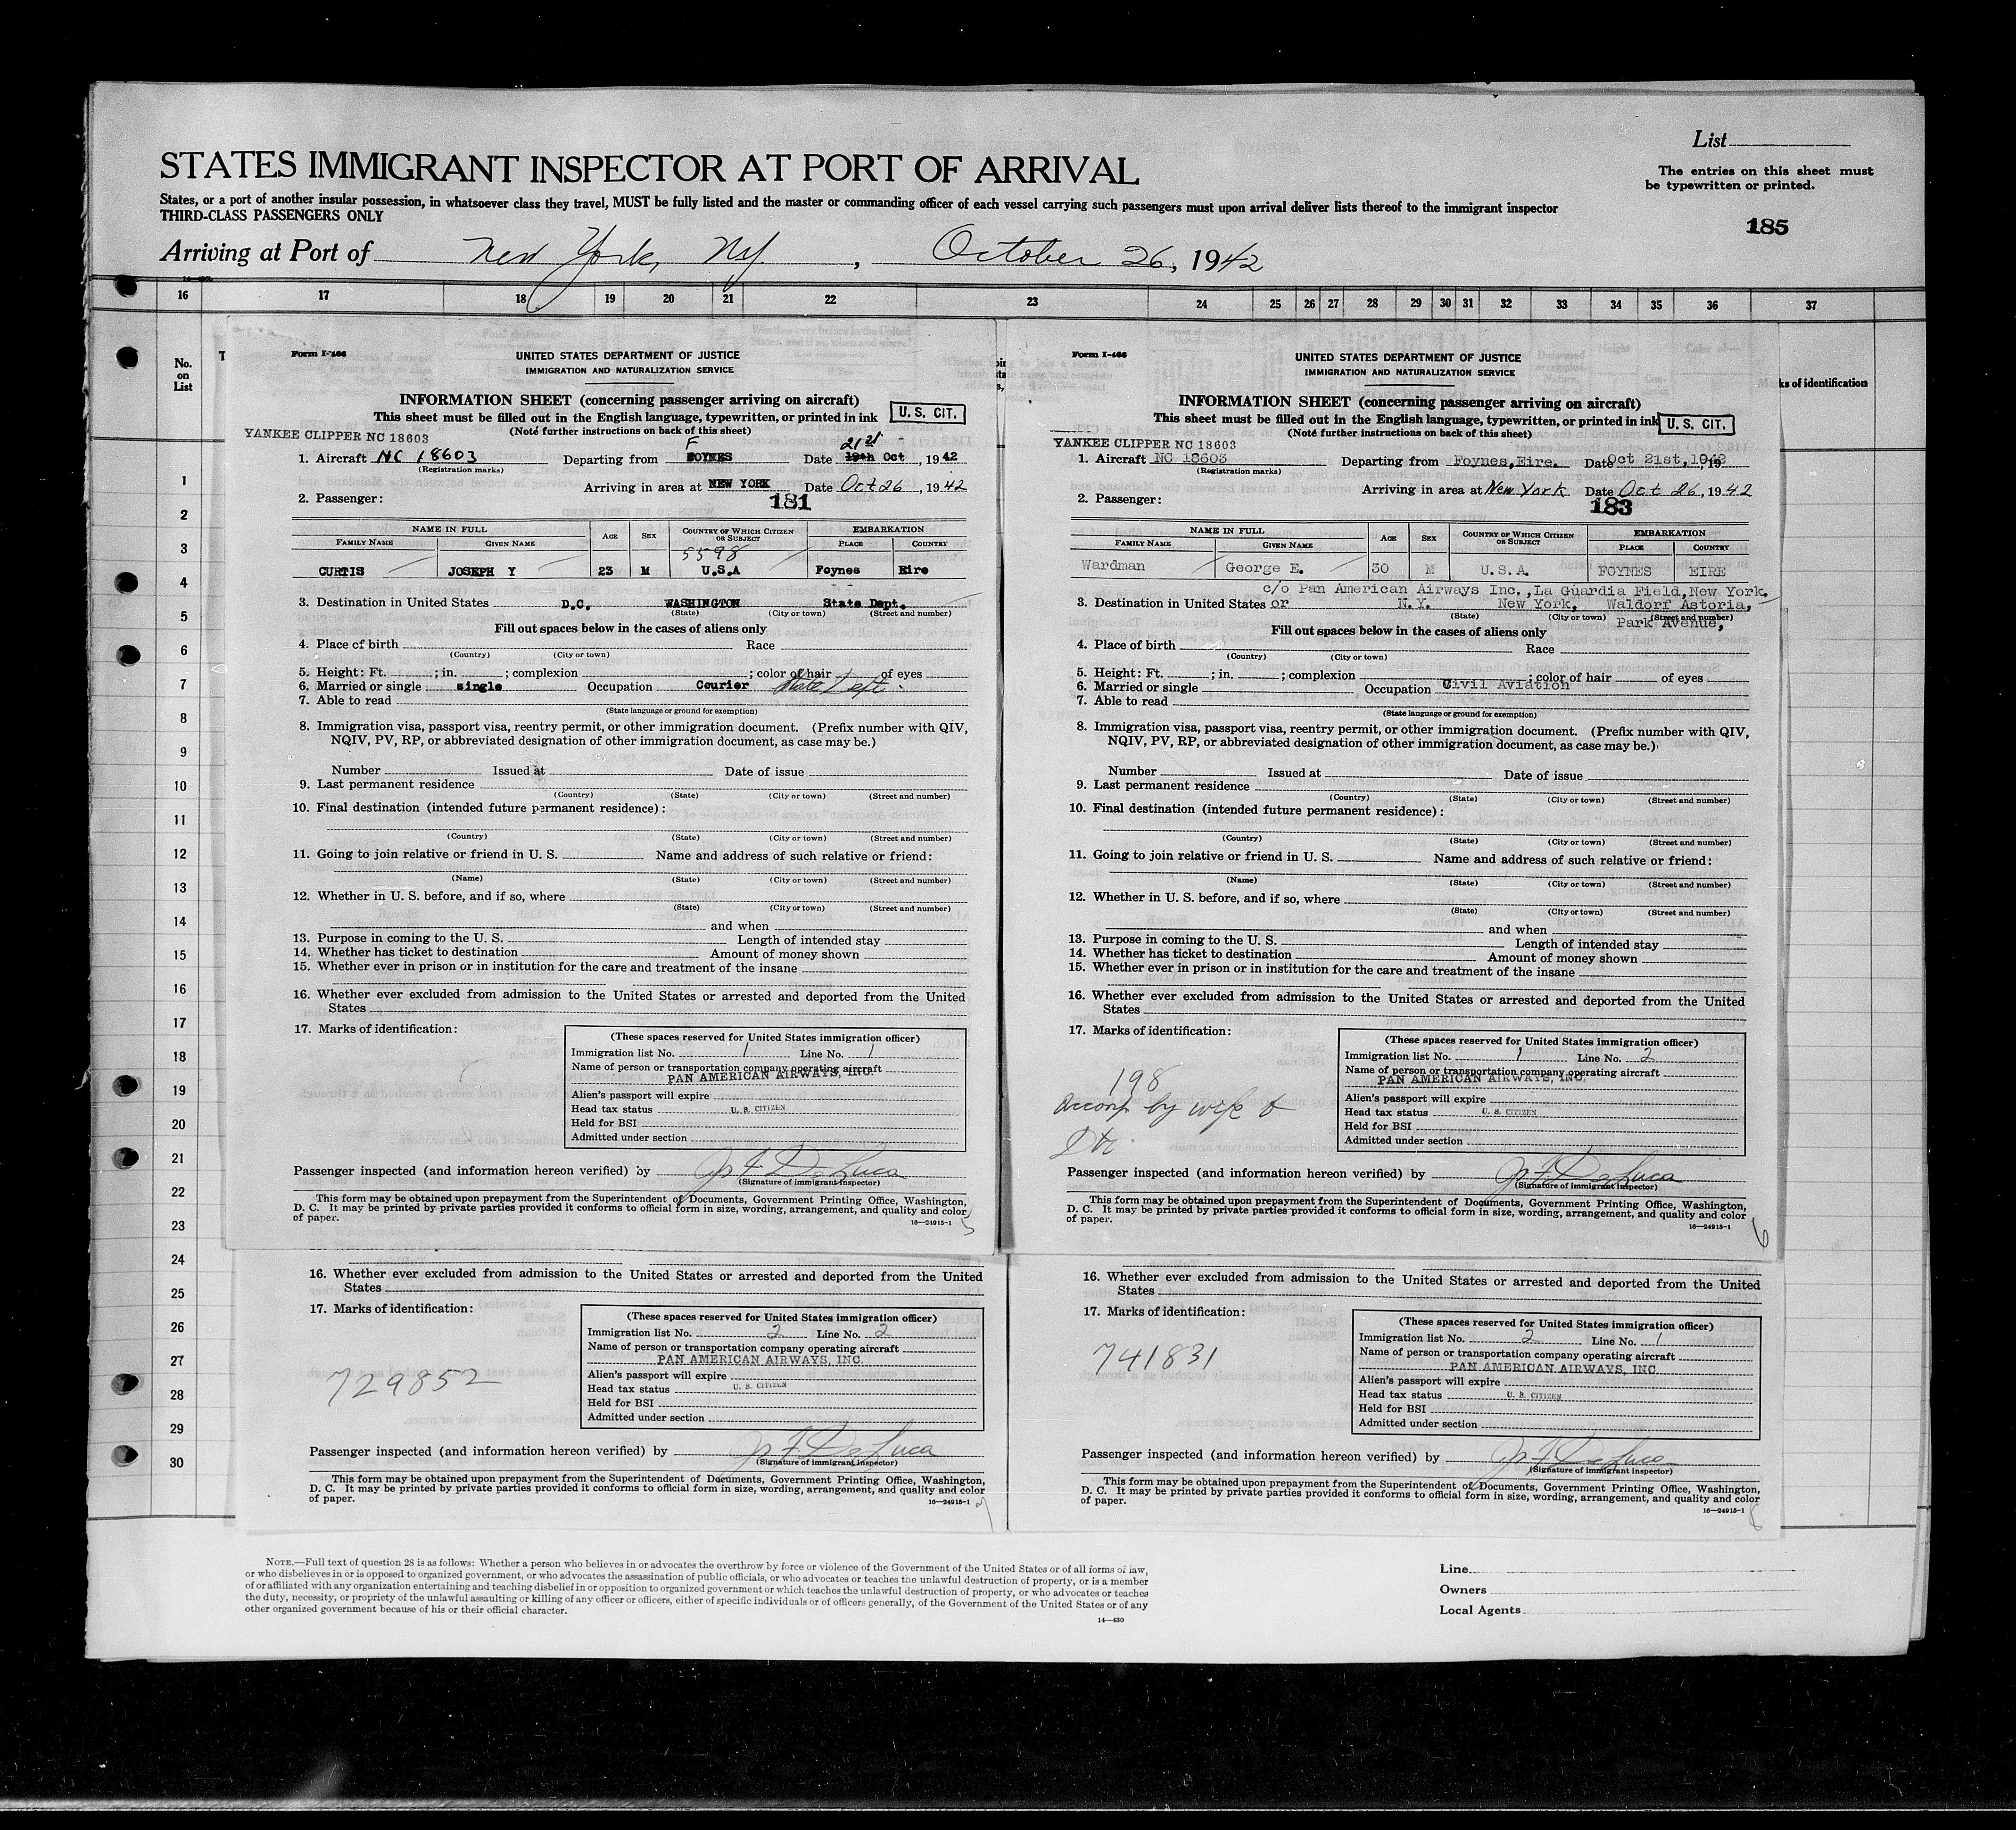 List
STATES IMMIGRANT INSPECTOR AT PORT OF ARRIVAL
The entries on this sheet must
be typewritten or printed.
States, or a port of another insular possession, in whatsoever class they travel, MUST be fully listed and the master or commanding officer of each vessel carrying such passengers must upon arrival deliver lists thereof to the immigrant inspector
THIRD-CLASS PASSENGERS ONLY
185
Arriving at Port of New York, NY. , October 26, 1942
16 17 18 19 20 21 22 23 24 25 26 27 28 29 30 31 32 33 34 35 36 37
No.
on
List
ks of identification
1
2
3
4
5
6
7
8
9
10
11
12
13
14
15
16
17
18
19
20
21
22
23
24
25
26
27
28
29
30
Form I-466
UNITED STATES DEPARTMENT OF JUSTICE
IMMIGRATION AND NATURALIZATION SERVICE
INFORMATION SHEET (concerning passenger arriving on aircraft)
This sheet must be filled out in the English language, typewritten, or printed in ink
U. S. CIT.
(Note further instructions on back of this sheet)
YANKEE CLIPPER NC 18603
F 21st
1. Aircraft NC 18603 Departing from FOYNES Date 19th Oct , 1942
(Registration marks)
Arriving in area at NEW YORK Date Oct 26 , 1942
2. Passenger: 181
NAME IN FULL AGE SEX COUNTRY OF WHICH CITIZEN OR SUBJECT EMBARKATION
FAMILY NAME GIVEN NAME PLACE COUNTRY
5598
CURTIS JOSEPH Y 23 M U.S.A Foynes Eire
3. Destination in United States D.C. WASHINGTON State Dept.
(State) (City or town) (Street and number)
Fill out spaces below in the cases of aliens only
4. Place of birth Race
(Country) (City or town)
5. Height: Ft. ; in. ; complexion ; color of hair of eyes
6. Married or single single Occupation Courier State Dept.
7. Able to read
(State language or ground for exemption)
8. Immigration visa, passport visa, reentry permit, or other immigration document. (Prefix number with QIV,
NQIV, PV, RP, or abbreviated designation of other immigration document, as case may be.)
Number Issued at Date of issue
9. Last permanent residence
(Country) (State) (City or town) (Street and number)
10. Final destination (intended future permanent residence):
(Country) (State) (City or town) (Street and number)
11. Going to join relative or friend in U. S. Name and address of such relative or friend:
(Name) (State) (City or town) (Street and number)
12. Whether in U. S. before, and if so, where
(State) (City or town) (Street and number)
and when
13. Purpose in coming to the U. S. Length of intended stay
14. Whether has ticket to destination Amount of money shown
15. Whether ever in prison or in institution for the care and treatment of the insane
16. Whether ever excluded from admission to the United States or arrested and deported from the United
States
17. Marks of identification:
(These spaces reserved for United States immigration officer)
Immigration list No. 1 Line No. 1
Name of person or transportation company operating aircraft
PAN AMERICAN AIRWAYS, INC.
Alien's passport will expire
Head tax status U. S. CITIZEN
Held for BSI
Admitted under section
Passenger inspected (and information hereon verified) by Jos F DeLuca
(Signature of immigrant inspector)
This form may be obtained upon prepayment from the Superintendent of Documents, Government Printing Office, Washington,
D. C. It may be printed by private parties provided it conforms to official form in size, wording, arrangement, and quality and color
of paper. 16—24915-1 5
Form I-466
UNITED STATES DEPARTMENT OF JUSTICE
IMMIGRATION AND NATURALIZATION SERVICE
INFORMATION SHEET (concerning passenger arriving on aircraft)
This sheet must be filled out in the English language, typewritten, or printed in ink
U. S. CIT.
(Note further instructions on back of this sheet)
YANKEE CLIPPER NC 18603
1. Aircraft NC 18603 Departing from Foynes, Eire. Date Oct 21st, 1942 , 19
(Registration marks)
Arriving in area at New York Date Oct 26 , 1942
2. Passenger: 183
NAME IN FULL AGE SEX COUNTRY OF WHICH CITIZEN OR SUBJECT EMBARKATION
FAMILY NAME GIVEN NAME PLACE COUNTRY
Wardman George E. 30 M U.S.A. FOYNES EIRE
c/o Pan American Airways Inc., La Guardia Field, New York.
3. Destination in United States or N.Y. New York, Waldorf Astoria,
(State) (City or town) (Street and number)
Park Avenue,
Fill out spaces below in the cases of aliens only
4. Place of birth Race
(Country) (City or town)
5. Height: Ft. ; in. ; complexion ; color of hair of eyes
6. Married or single Occupation Civil Aviation
7. Able to read
(State language or ground for exemption)
8. Immigration visa, passport visa, reentry permit, or other immigration document. (Prefix number with QIV,
NQIV, PV, RP, or abbreviated designation of other immigration document, as case may be.)
Number Issued at Date of issue
9. Last permanent residence
(Country) (State) (City or town) (Street and number)
10. Final destination (intended future permanent residence):
(Country) (State) (City or town) (Street and number)
11. Going to join relative or friend in U. S. Name and address of such relative or friend:
(Name) (State) (City or town) (Street and number)
12. Whether in U. S. before, and if so, where
(State) (City or town) (Street and number)
and when
13. Purpose in coming to the U. S. Length of intended stay
14. Whether has ticket to destination Amount of money shown
15. Whether ever in prison or in institution for the care and treatment of the insane
16. Whether ever excluded from admission to the United States or arrested and deported from the United
States
17. Marks of identification:
198
accomp by wife &
Dtr.
(These spaces reserved for United States immigration officer)
Immigration list No. 1 Line No. 2
Name of person or transportation company operating aircraft
PAN AMERICAN AIRWAYS, INC.
Alien's passport will expire
Head tax status U. S. CITIZEN
Held for BSI
Admitted under section
Passenger inspected (and information hereon verified) by Jos F DeLuca
(Signature of immigrant inspector)
This form may be obtained upon prepayment from the Superintendent of Documents, Government Printing Office, Washington,
D. C. It may be printed by private parties provided it conforms to official form in size, wording, arrangement, and quality and color
of paper. 16—24915-1 6
16. Whether ever excluded from admission to the United States or arrested and deported from the United
States
17. Marks of identification:
729852
(These spaces reserved for United States immigration officer)
Immigration list No. 2 Line No. 2
Name of person or transportation company operating aircraft
PAN AMERICAN AIRWAYS, INC.
Alien's passport will expire
Head tax status U. S. CITIZEN
Held for BSI
Admitted under section
Passenger inspected (and information hereon verified) by Jos F DeLuca
(Signature of immigrant inspector)
This form may be obtained upon prepayment from the Superintendent of Documents, Government Printing Office, Washington,
D. C. It may be printed by private parties provided it conforms to official form in size, wording, arrangement, and quality and color
of paper. 16—24915-1
16. Whether ever excluded from admission to the United States or arrested and deported from the United
States
17. Marks of identification:
741831
(These spaces reserved for United States immigration officer)
Immigration list No. 2 Line No. 1
Name of person or transportation company operating aircraft
PAN AMERICAN AIRWAYS, INC
Alien's passport will expire
Head tax status U. S. CITIZEN
Held for BSI
Admitted under section
Passenger inspected (and information hereon verified) by Jos F DeLuca
(Signature of immigrant inspector)
This form may be obtained upon prepayment from the Superintendent of Documents, Government Printing Office, Washington,
D. C. It may be printed by private parties provided it conforms to official form in size, wording, arrangement, and quality and color
of paper. 16—24915-1 8
NOTE.—Full text of question 28 is as follows: Whether a person who believes in or advocates the overthrow by force or violence of the Government of the United States or of all forms of law,
or who disbelieves in or is opposed to organized government, or who advocates the assassination of public officials, or who advocates or teaches the unlawful destruction of property, or is a member
of or affiliated with any organization entertaining and teaching disbelief in or opposition to organized government or which teaches the unlawful destruction of property, or who advocates or teaches
the duty, necessity, or propriety of the unlawful assaulting or killing of any officer or officers, either of specific individuals or of officers generally, of the Government of the United States or of any
other organized government because of his or their official character.
14—430
Line
Owners
Local Agents